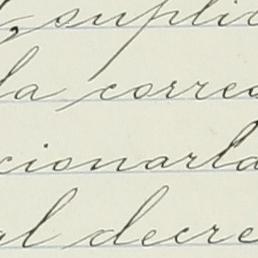 , suplic
la correc
cionarla
al decre